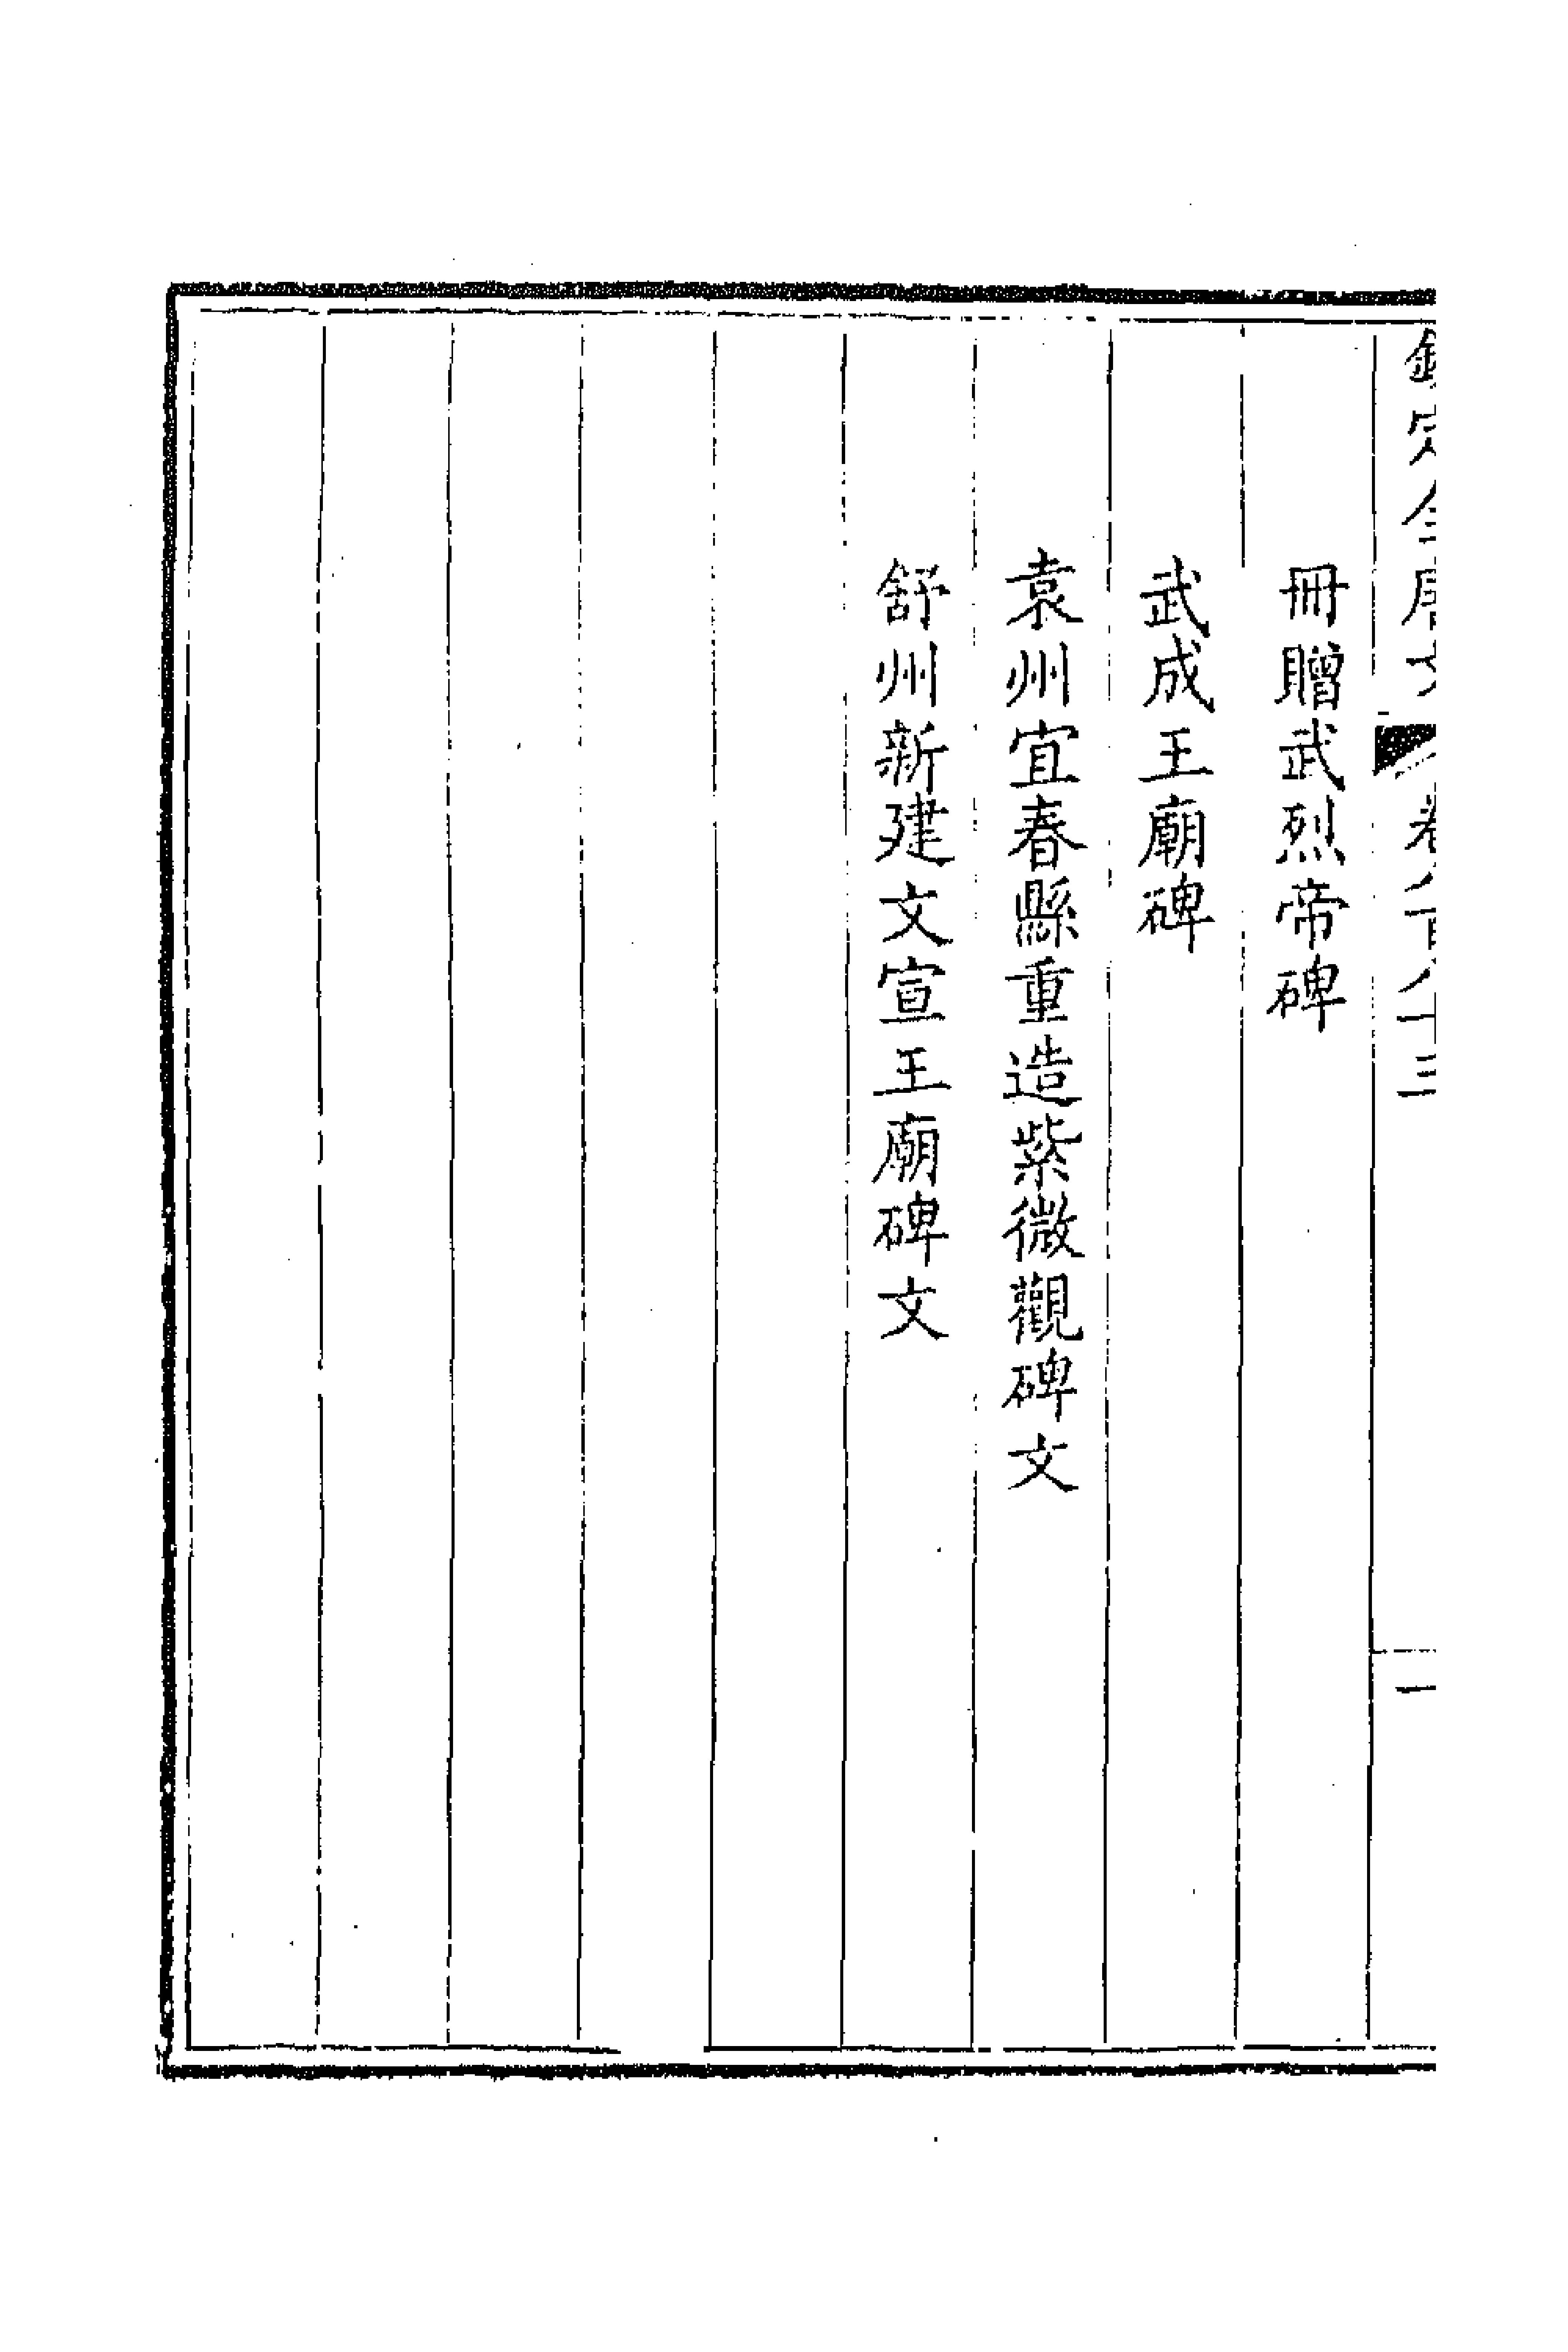 欽定全唐文 卷八百八十三 一
冊贈武烈帝碑
武成王廟碑
袁州宜春縣重造紫微觀碑文
舒州新建文宣王廟碑文